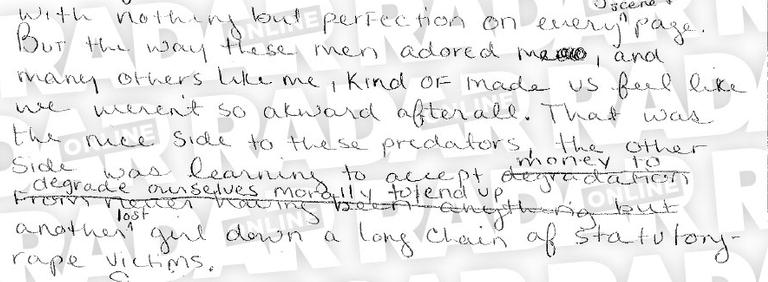 scene
with nothing but perfection on every page.
But the way these men adored me, and
many others like me, kind of made us feel like
we weren't so akward afterall. That was
the nice side to these predators, the other
side was learning to accept money to
degradation
degrade ourselves morally to end up
From never having been anything but
another lost girl down a long chain of statutory-
rape victims.
RADAR ONLINE